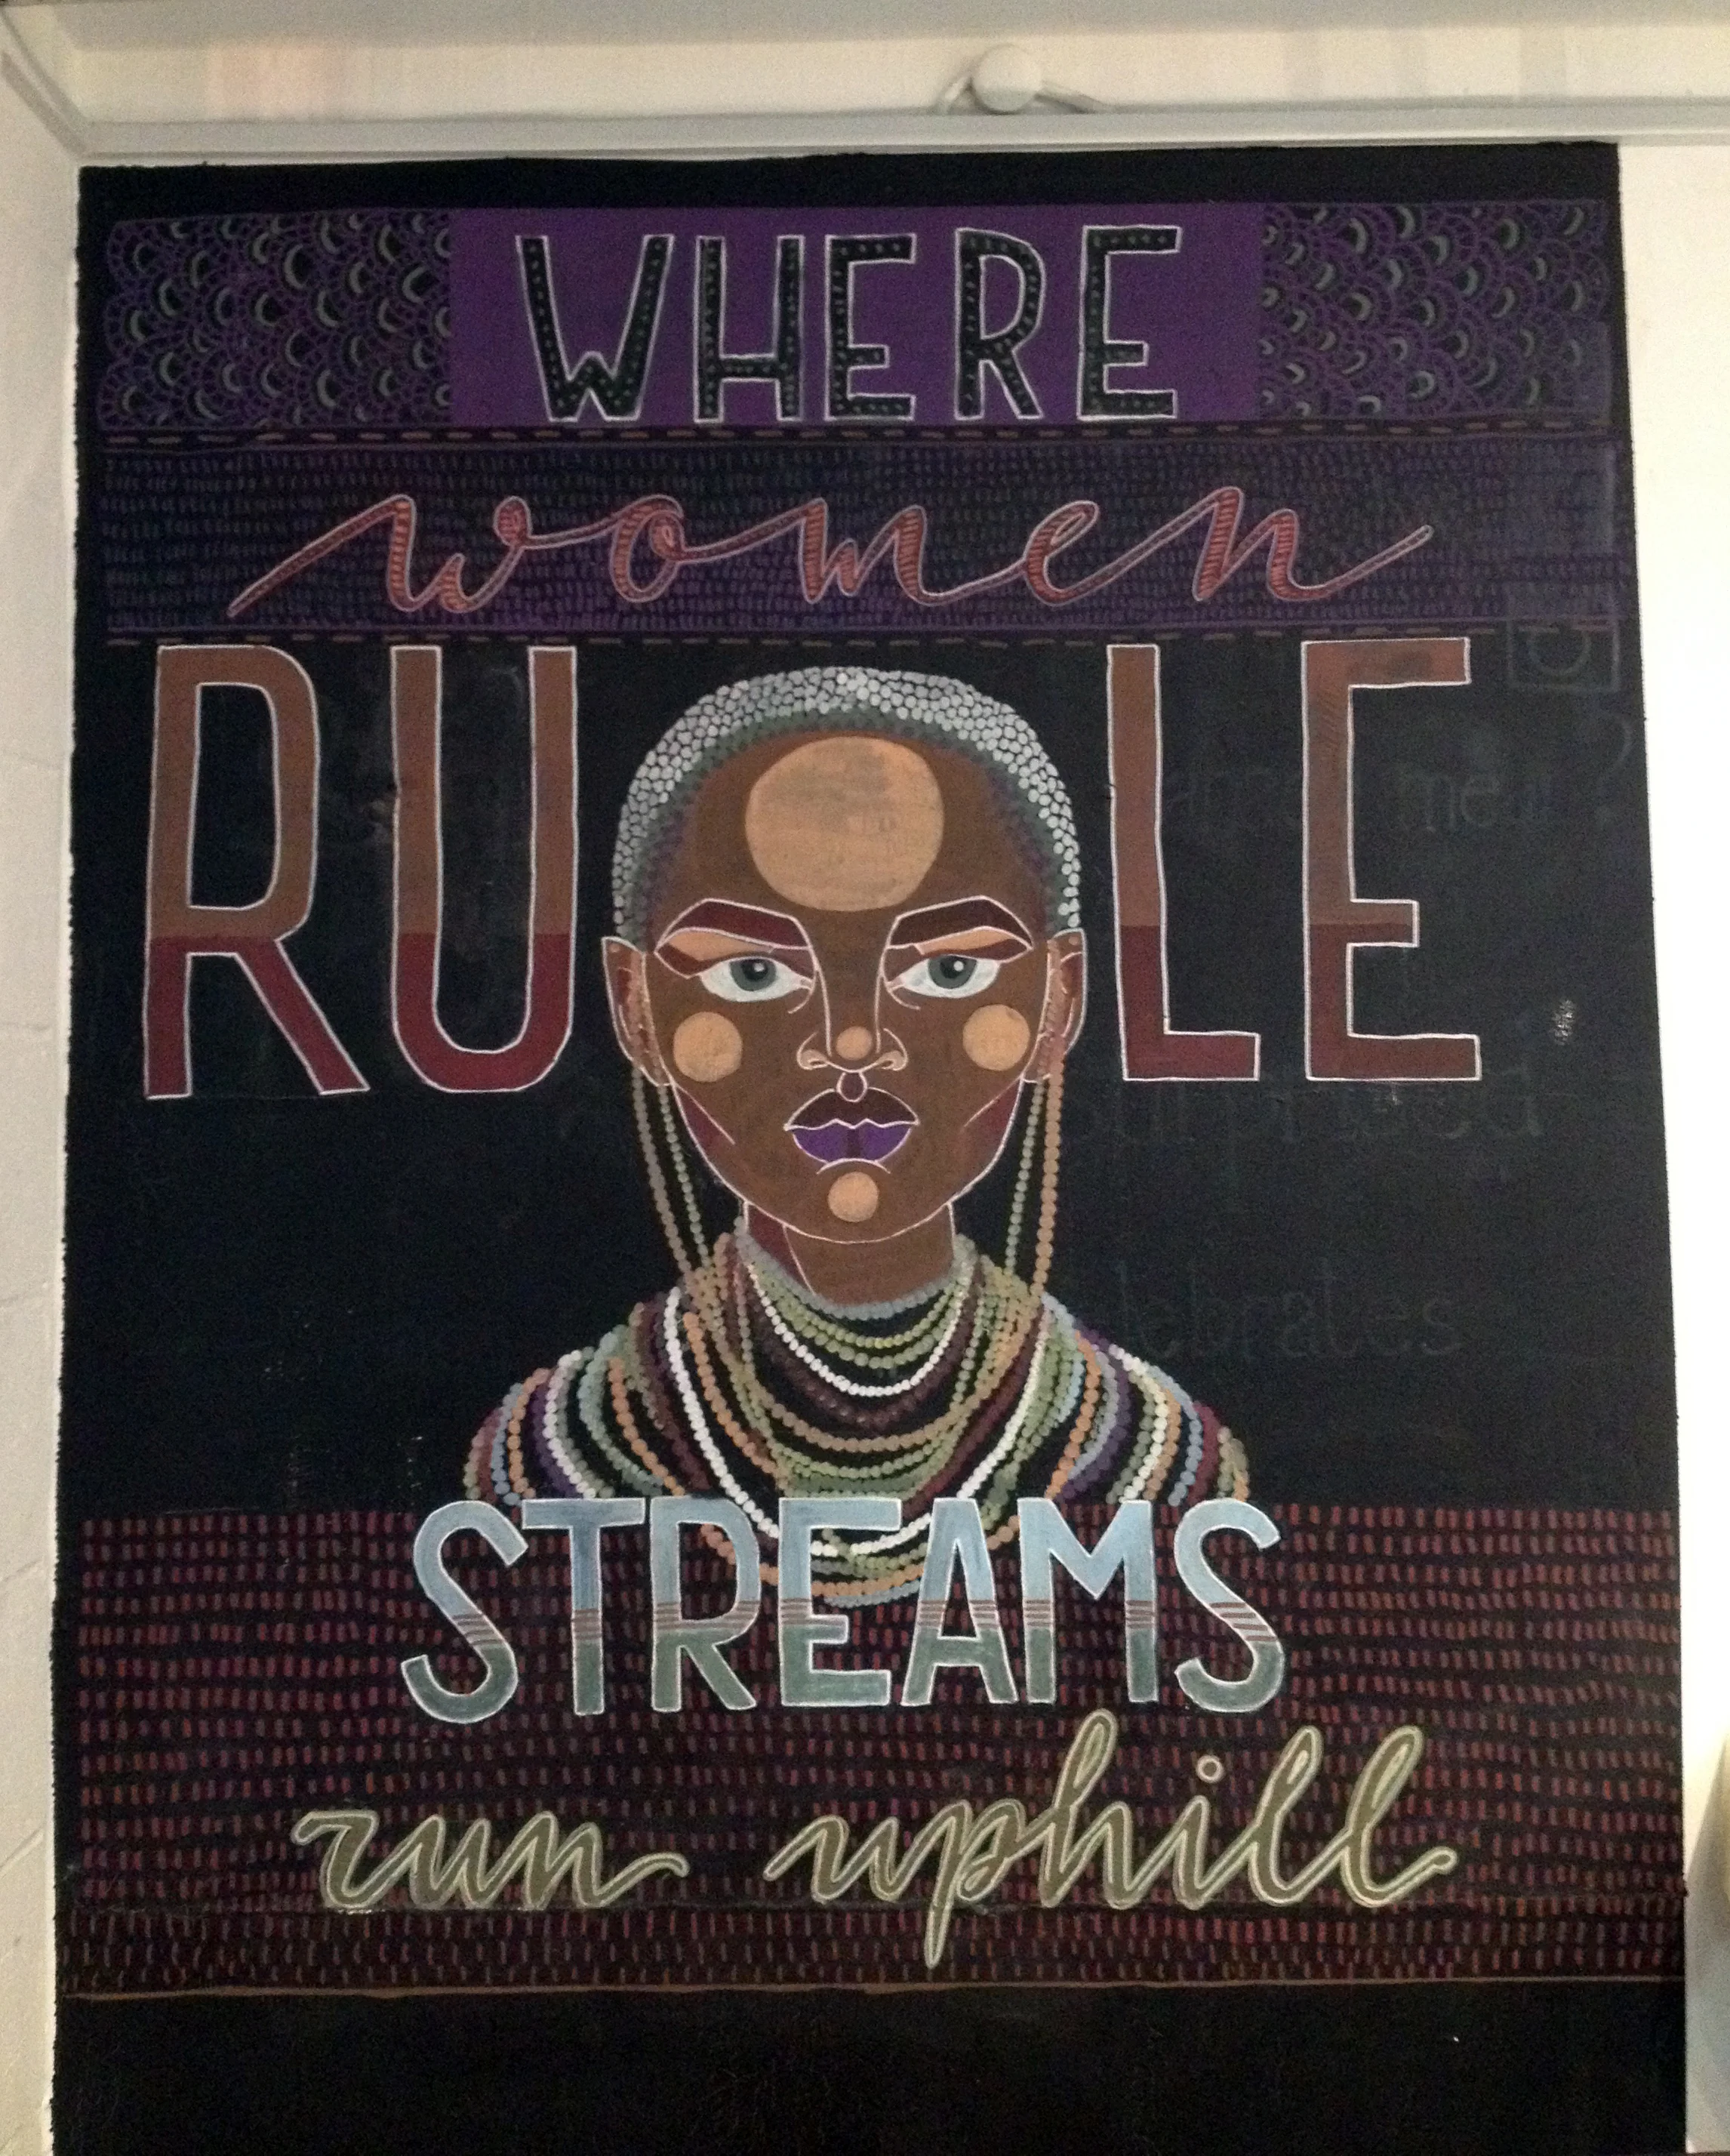 WHERE
women
RULE
STREAMS
run uphill